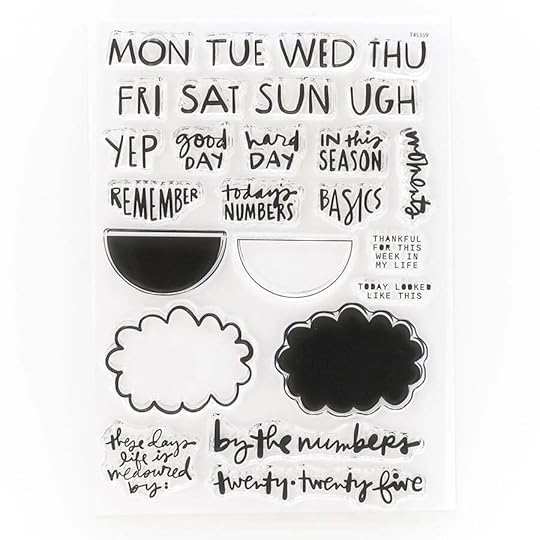 T45359
MON TUE WED THU
FRI SAT SUN UGH
YEP
good
DAY
hard
DAY
IN this
SEASON
moments
REMEMBER
today's
NUMBERS
BASICS
THANKFUL
FOR THIS
WEEK IN
MY LIFE
TODAY LOOKED
LIKE THIS
these days
life is
measured
by:
by the numbers
twenty·twenty five